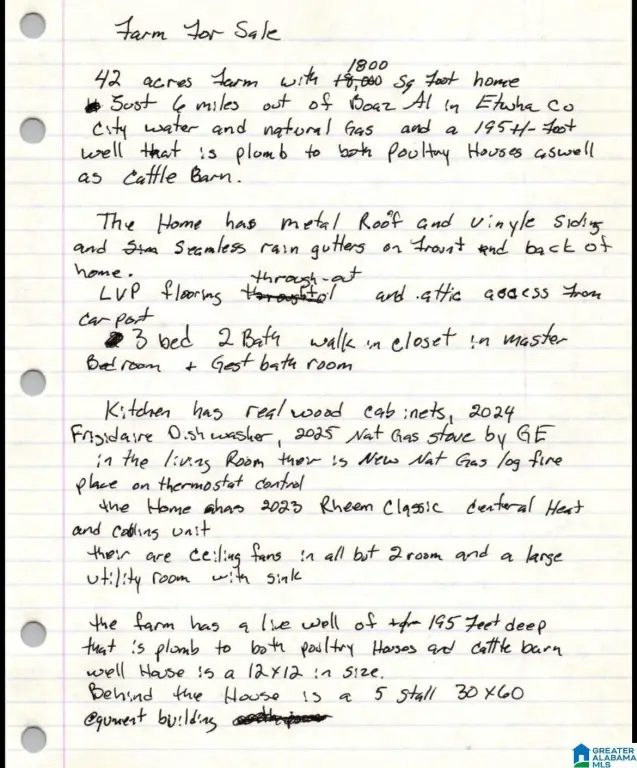 Farm For Sale
1800
42 acres farm with 18,000 Sq Foot home
Just 6 miles out of Boaz Al in Etwha Co
City water and natural Gas and a 195+/- foot
well that is plumb to both Poultry Houses aswell
as Cattle Barn.
The Home has metal Roof and Vinyle Siding
and Seamless rain gutters on Frount and back of
home.
through-out
LVP flooring and attic access from
car port
3 bed 2 Bath walk in closet in master
Bedroom + Gest bath room
Kitchen has real wood cabinets, 2024
Frigidaire Dishwasher, 2025 Nat Gas stove by GE
in the living Room their is New Nat Gas log fire
place on thermostat control
the Home has 2023 Rheem Classic Centeral Heat
and Cooling unit
their are Ceiling fans in all but 2 room and a large
utility room with sink
the farm has a live well of +/- 195 Feet deep
that is plumb to both poultry Houses and Cattle barn
well House is a 12x12 in size.
Behind the House is a 5 stall 30x60
equment building
GREATER
ALABAMA
MLS